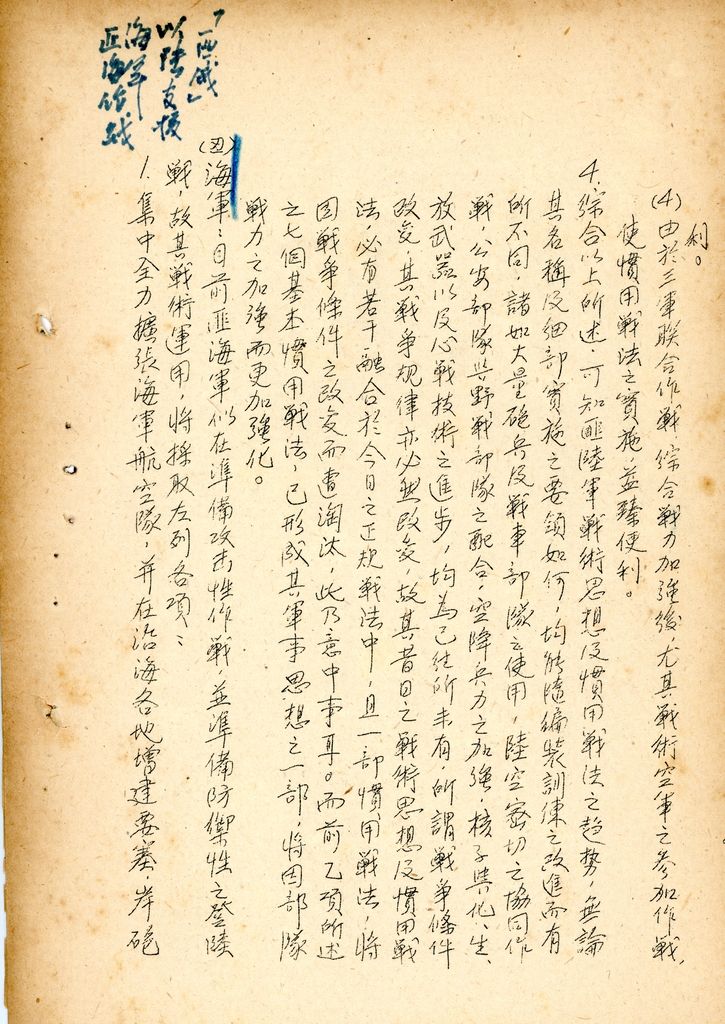 利。
(4)由於三軍聯合作戰,綜合戰力加強後,尤其戰術空軍之參加作戰,
使慣用戰法之實施,益臻便利。
4.綜合以上所述,可知匪陸軍戰術思想及慣用戰法之趨勢,無論
其名稱及細部實施之要領如何,均能隨編裝訓練之改進而有
所不同 諸如大量砲兵及戰車部隊之使用,陸空密切之協同作
戰,公安部隊與野戰部隊之配合,空降兵力之加強,核子與化、生、
放武器以及心戰技術之進步,均為已往所未有,所謂戰爭條件
改变,其戰爭規律亦必無改变,故其昔日之戰術思想及慣用戰
法,必有若干融合於今日之正規戰法中,且一部慣用戰法,將
因戰爭條件之改变而遭淘汰,此乃意中事耳。而前乙項所述
之七個基本慣用戰法,已形成其軍事思想之一部,將因部隊
戰力之加強而更加強化。
(丑)海軍:目前匪海軍似在準備攻击性作戰,並準備防禦性之登陸
戰,故其戰術運用,將採取左列各項:
1.集中全力擴張海軍航空隊,并在沿海各地增建要塞,岸砲
以陸支援
海洋
近海作战